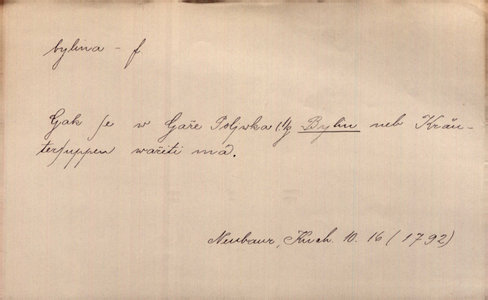 bylina - f
Gak se w Gaře Polywka z Bylin neb Kräu-
tersuppen wařiti má.
Neubaur, Kuch. 10. 16 (1792)